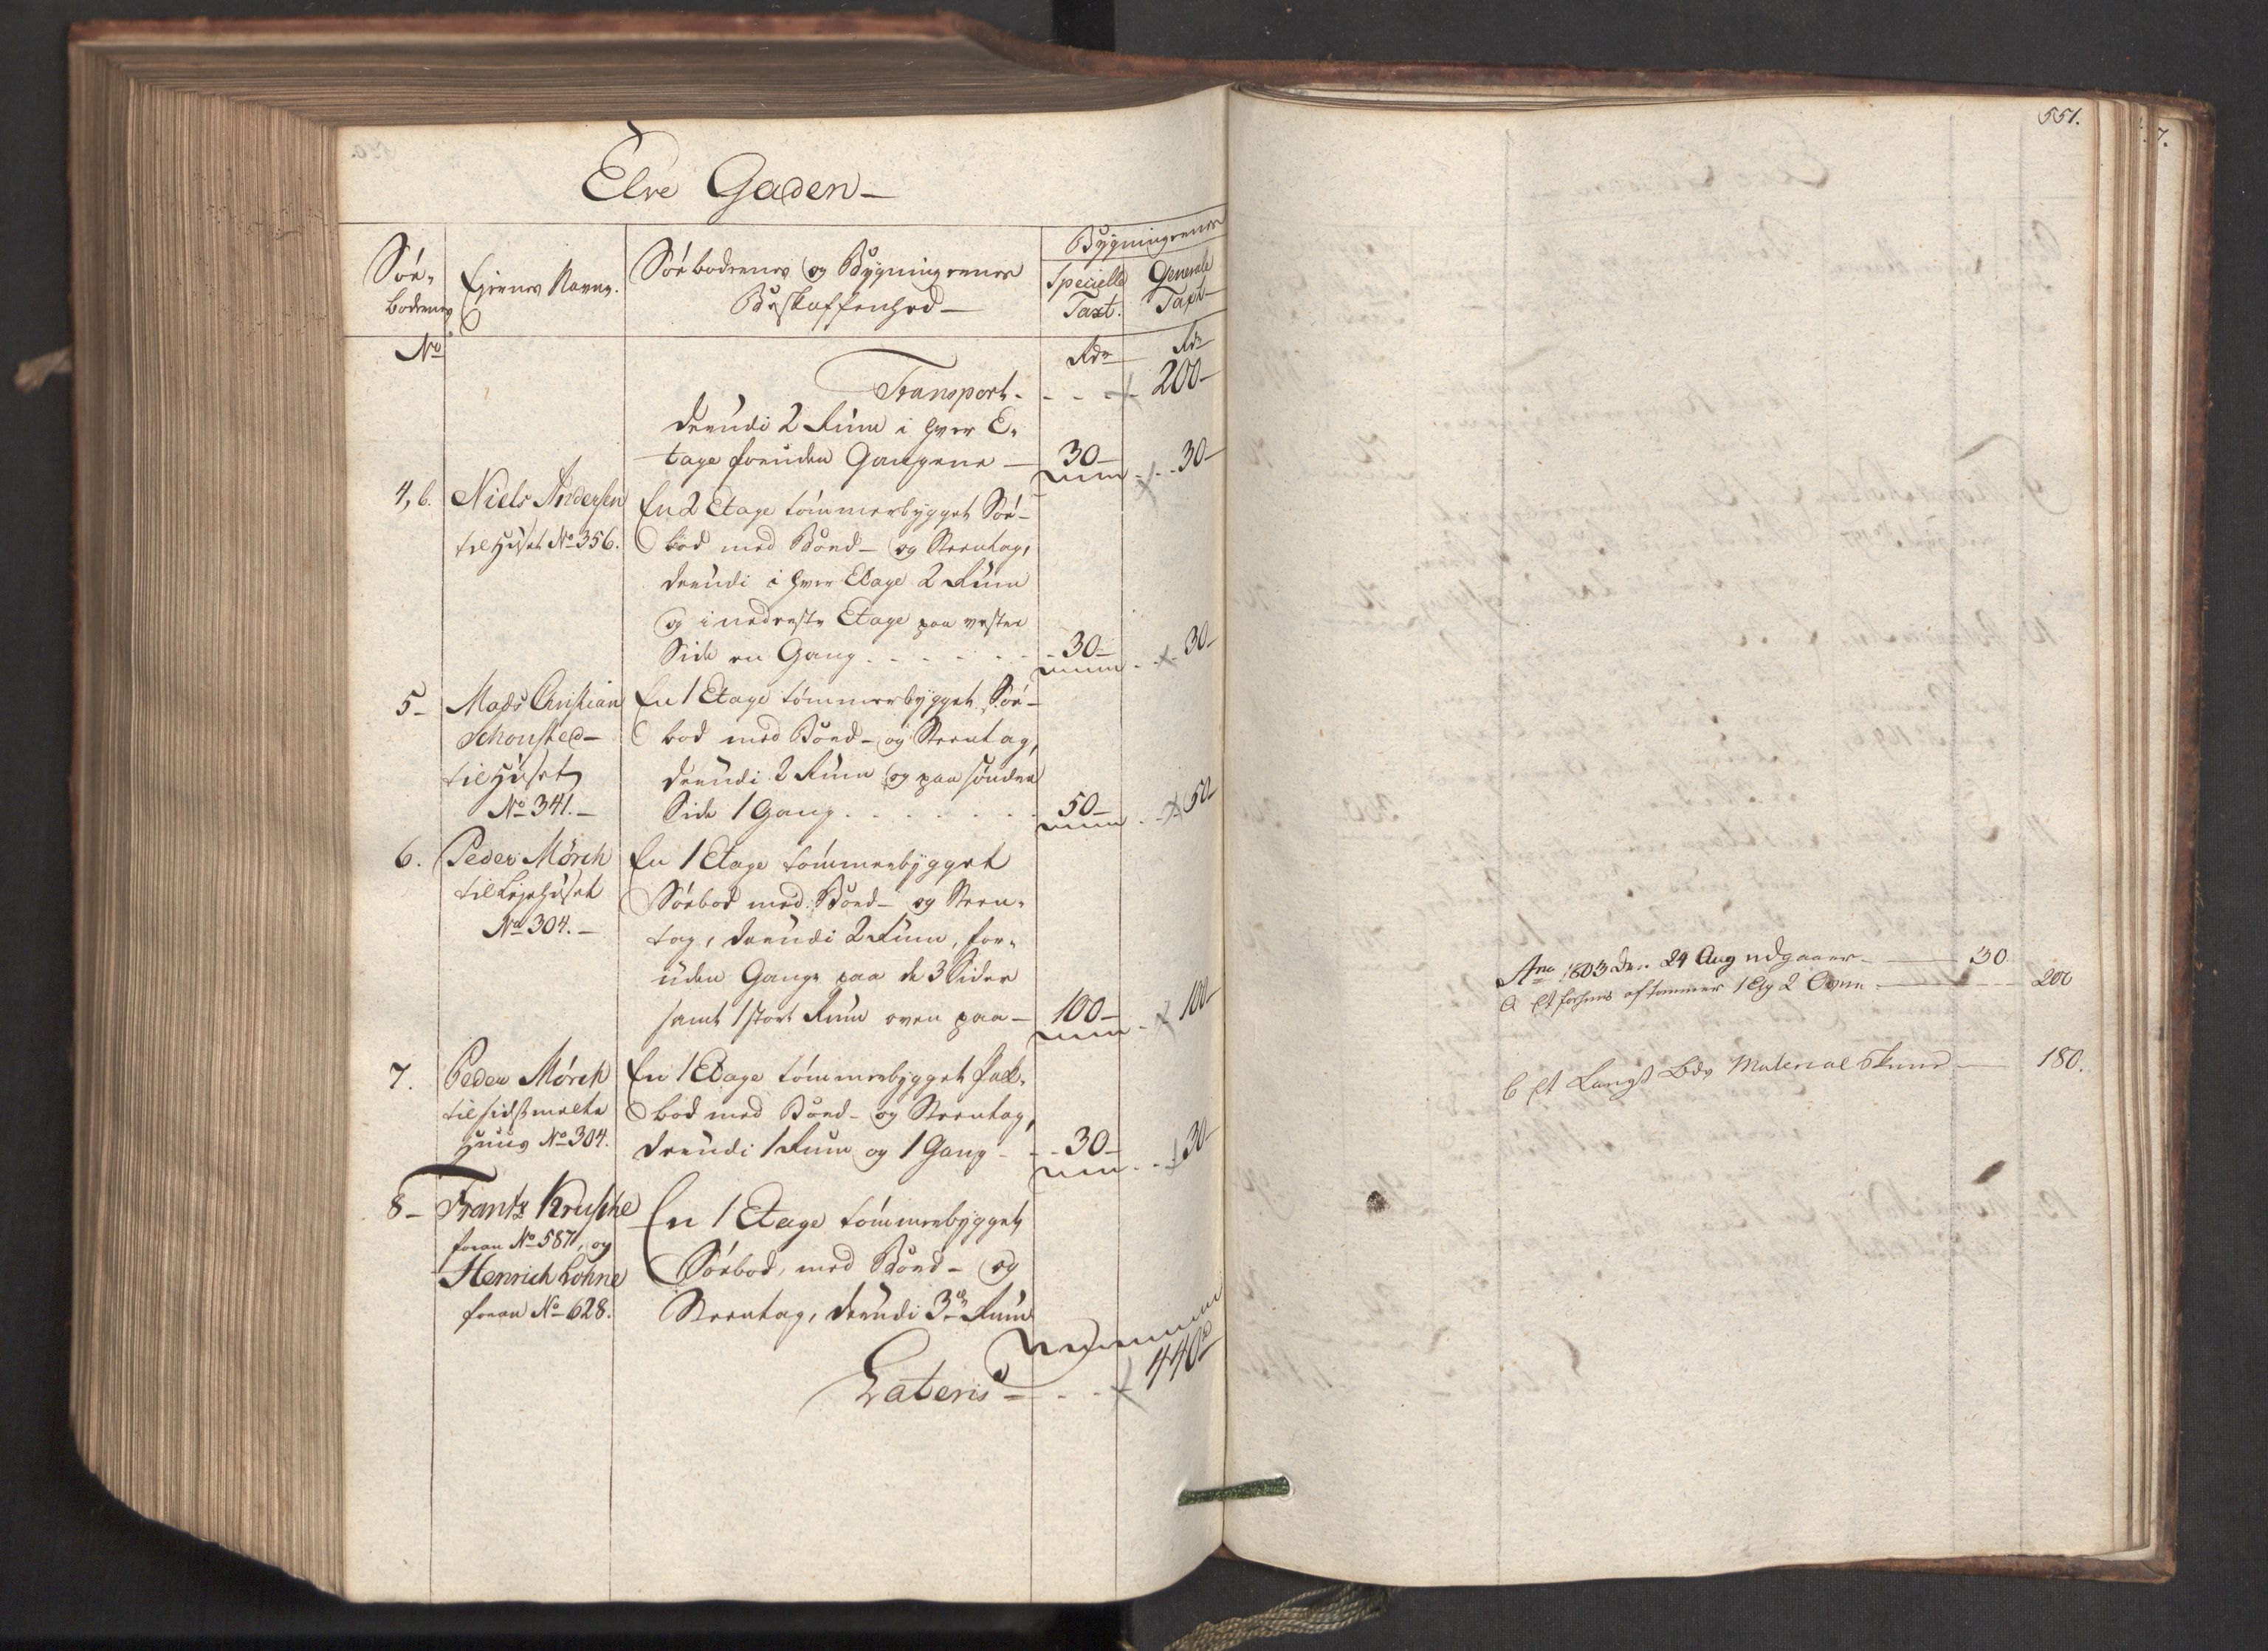 Elve Gaden –
Söe-
bodenes
No
Ejernes Navne.
Söebodernes og Bygningernes
Beskaffenhed –
Bygningernes
Specielle
Taxt.
Generale
Taxt
Rdr
Rdr
Transport - - - - 200 –
derudi 2 Rum i hver E-
tage foruden Gangene – 30 – - - 30 –
4, b. Niels Andersen
til Huset No 356.
En 2 Etage tömmerbygget Söe-
bod med Bord- og Steentag,
derudi i hver Etage 2 Rum
og i nederste Etage paa vester
Side en Gang - - - - - 30 – - - 30 –
5 – Mads Christian
Schousted –
til Huset
No 341. –
En 1 Etage tömmerbygget Söe-
bod med Bord- og Steentag,
derudi 2 Rum og paa sönder
Side 1 Gang - - - - - - 50 – - - 50
6. Peder Mörch
til Lejehuset
No 304. –
En 1 Etage tömmerbygget
Söebod med Bord- og Steen-
tag, derudi 2 Rum, for-
uden Gange paa de 3 Sider
samt 1 stort Rum oven paa – 100 – - 100 –
7. Peder Mörch
til sidstmelte
Huus No 304.
En 1 Etage tömmerbygget Pak-
bod med Bord- og Steentag,
derudi 1 Rum og 1 Gang - - 30 – - - 30 –
8 – Frantz Kruschke
foran No 587, og
Henrich Lohne
foran No 628.
En 1 Etage tömmerbygget
Söebod, med Bord- og
Steentag, derudi 3de Rum
Lateris - - - 440
551.
Ano 1803 den 24 Aug udgaaer – 30
a Et af tömmer 1 Etg 2 Ovne – - - - 200
b Et Langs Material Skuur – 180.